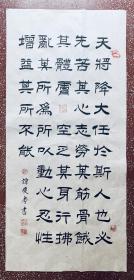 天將降大任於斯人也必
先苦其心志勞其筋骨餓
其體膚空乏其身行拂
亂其所為所以動心忍性
增益其所不能
書